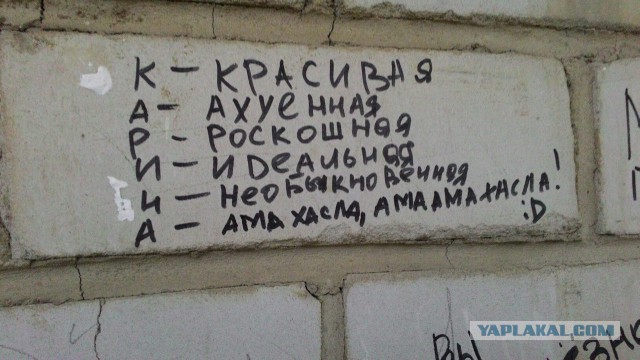 К – КРАСИВАЯ
А – АХУЕННАЯ
Р – РОСКОШНАЯ
И – ИДЕАЛЬНАЯ
Н – НЕОБЫКНОВЕННАЯ
А – АМА ХАСЛА, АМА АМА ХАСЛА!
:D
ВЫ
YAPLAKAL.COM